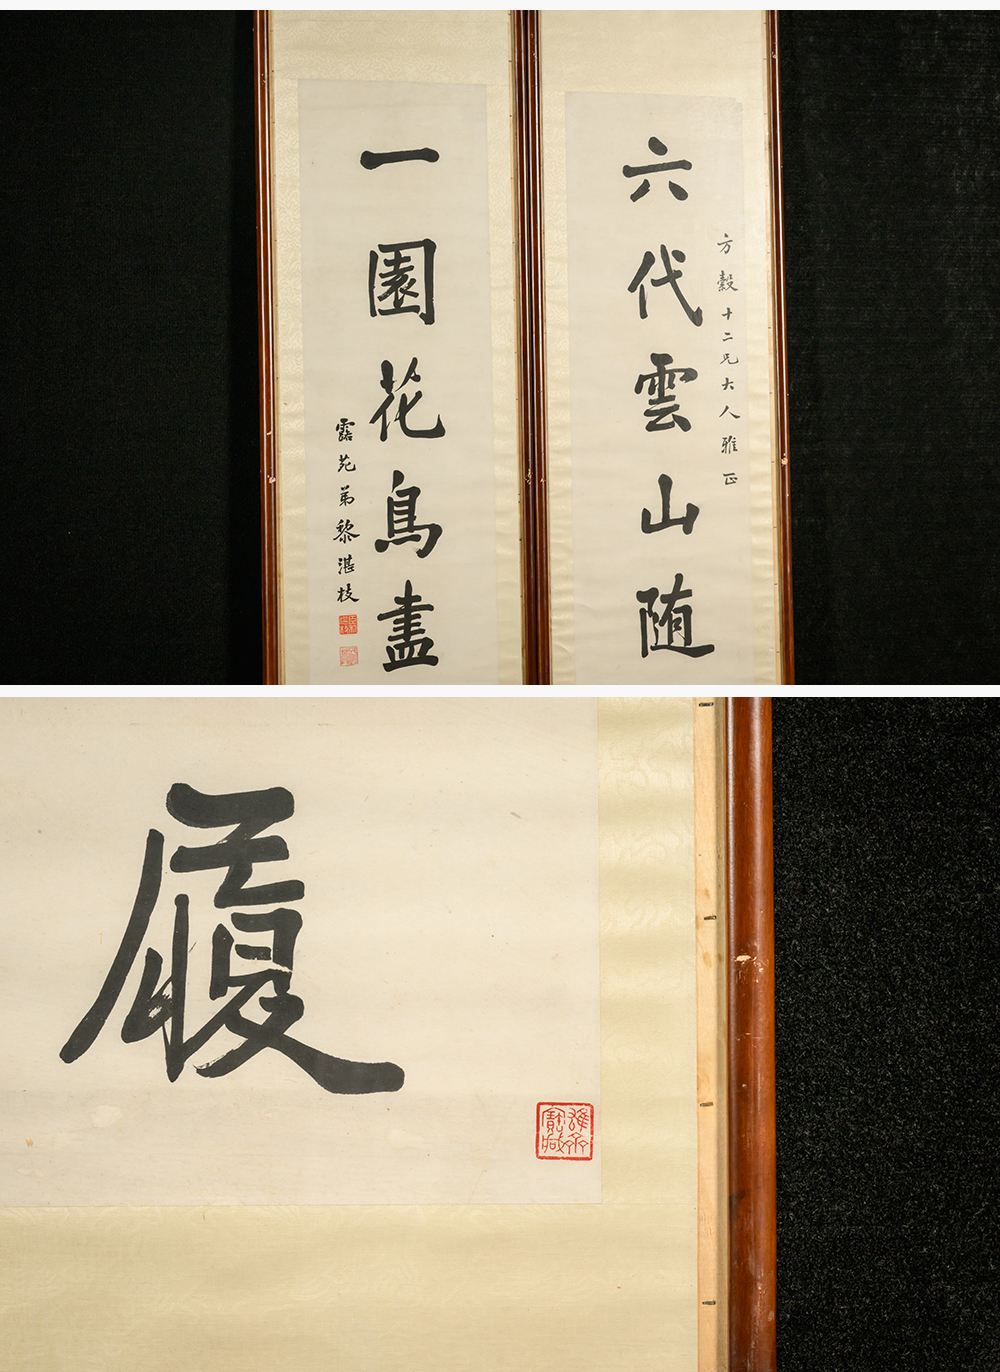 六代雲山随
方穀十二兄大人雅正
一園花鳥盡
露苑弟黎湛枝
履